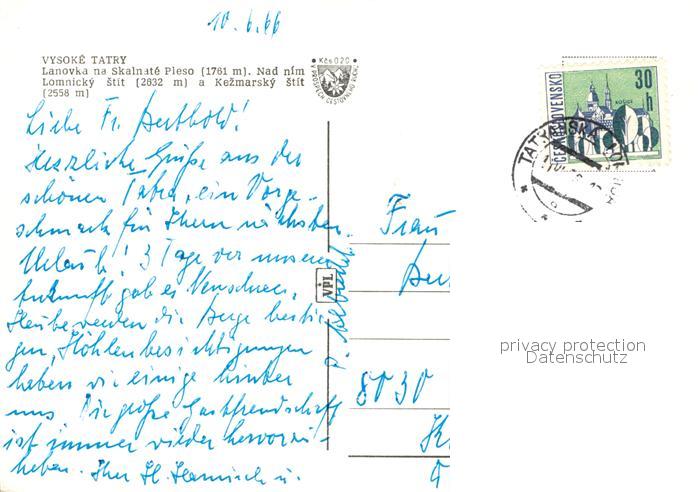 10.6.66
VYSOKÉ TATRY
Lanovka na Skalnaté Pleso (1761 m). Nad ním
Lomnický štít (2632 m) a Kežmarský štít
(2558 m)
Kčs 0,20
V PROSPECH CESTOVNÉHO RUCHU
Liebe Fr. Berthold!
Herzliche Grüße aus der
schönen Tatra, ein Vorge-
schmack für Ihren nächsten
Urlaub! 3 Tage vor unserer
Ankunft gab es Neuschnee,
Heute werden die Berge bestie-
gen, Höhlenbesichtigungen
haben wir einige hinter
uns. Die große Gastfreundschaft
ist immer wieder hervorzu-
heben. Ihr H. u.
VPL
Frau
8030
ČESKOSLOVENSKO
30 h
KOŠICE
TATRANSKÁ
privacy protection
Datenschutz